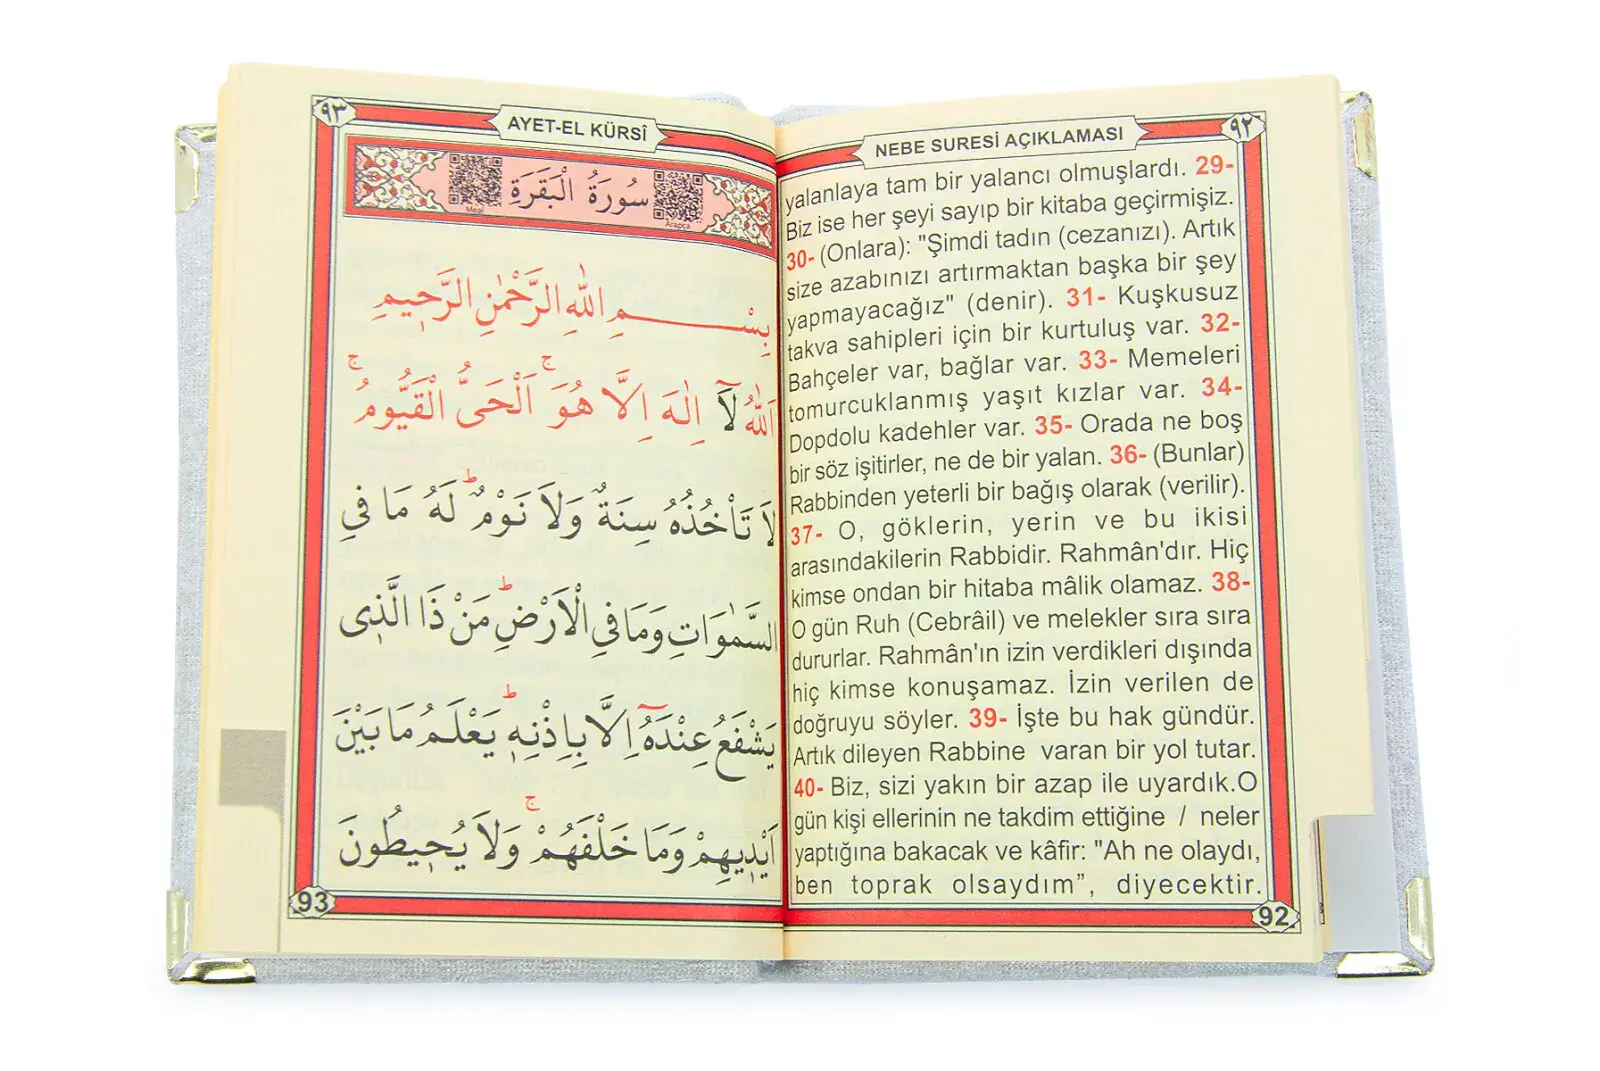 ٩٢
NEBE SURESİ AÇIKLAMASI
yalanlaya tam bir yalancı olmuşlardı. 29-
Biz ise her şeyi sayıp bir kitaba geçirmişiz.
30- (Onlara): "Şimdi tadın (cezanızı). Artık
size azabınızı artırmaktan başka bir şey
yapmayacağız" (denir). 31- Kuşkusuz
takva sahipleri için bir kurtuluş var. 32-
Bahçeler var, bağlar var. 33- Memeleri
tomurcuklanmış yaşıt kızlar var. 34-
Dopdolu kadehler var. 35- Orada ne boş
bir söz işitirler, ne de bir yalan. 36- (Bunlar)
Rabbinden yeterli bir bağış olarak (verilir).
37- O, göklerin, yerin ve bu ikisi
arasındakilerin Rabbidir. Rahmân'dır. Hiç
kimse ondan bir hitaba mâlik olamaz. 38-
O gün Ruh (Cebrâil) ve melekler sıra sıra
dururlar. Rahmân'ın izin verdikleri dışında
hiç kimse konuşamaz. İzin verilen de
doğruyu söyler. 39- İşte bu hak gündür.
Artık dileyen Rabbine varan bir yol tutar.
40- Biz, sizi yakın bir azap ile uyardık.O
gün kişi ellerinin ne takdim ettiğine / neler
yaptığına bakacak ve kâfir: "Ah ne olaydı,
ben toprak olsaydım”, diyecektir.
92
٩٣
AYET-EL KÜRSÎ
سُورَةُ الْبَقَرَةِ
Meal
Arapça
بِسْــــــمِ اللّٰهِ الرَّحْمٰنِ الرَّحِيمِ
اَللّٰهُ لَٓا اِلٰهَ اِلَّا هُوَۚ اَلْحَىُّ الْقَيُّومُۚ
لَا تَأْخُذُهُ سِنَةٌ وَلَا نَوْمٌۜ لَهُ مَا فِي
السَّمٰوَاتِ وَمَا فِي الْاَرْضِۜ مَنْ ذَا الَّذِى
يَشْفَعُ عِنْدَهُٓ اِلَّا بِاِذْنِهِۜ يَعْلَمُ مَا بَيْنَ
اَيْدِيهِمْ وَمَا خَلْفَهُمْۚ وَلَا يُحِيطُونَ
93